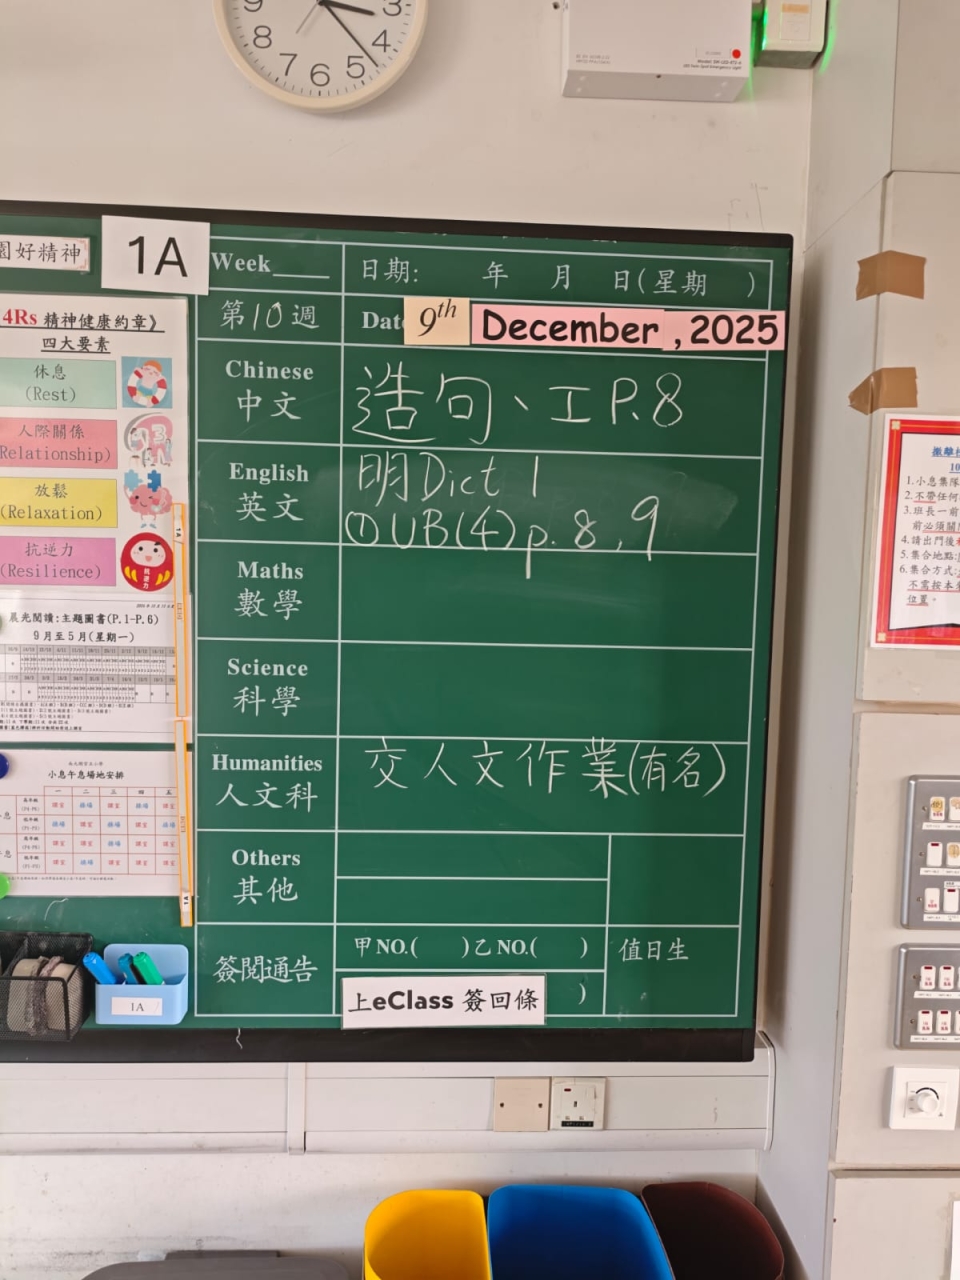 9
3
8
4
7
6
5
園好精神
1A
Week____ 日期: 年 月 日(星期 )
第10週 Date 9th December , 2025
Chinese
中文
造句、工P.8
English
英文
明Dict 1
①UB(4)p.8,9
Maths
數學
Science
科學
Humanities
人文科
交人文作業(有名)
Others
其他
簽閱通告
甲NO.( )乙NO.( )
上eClass 簽回條 )
值日生
4Rs 精神健康約章》
四大要素
休息
(Rest)
人際關係
Relationship)
放鬆
(Relaxation)
抗逆力
(Resilience)
抗逆力
晨光閱讀:主題圖書(P.1-P.6)
9月至5月(星期一)
小息午息場地安排
一 二 三 四 五
1A
1.小息集隊
2.不帶任何
3.班長一前
前必須關
4.請出門後
5.集合地點:
6.集合方式:
不需按本
位置。